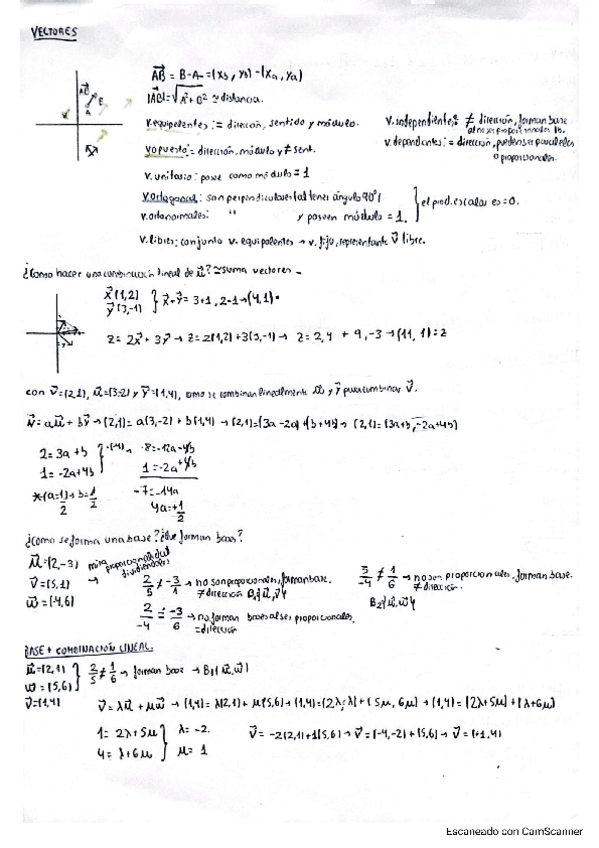 VECTORES
AB = B-A = (xb, yb) - (xa, ya)
|AB| = √A²+B² ≃ distancia.
v. equipolentes: = dirección, sentido y módulo.
v. opuesto: = dirección, módulo y ≠ sent.
v. unitario: posee como módulo = 1
v. ortogonal: son perpendiculares (al tener ángulo 90º)
v. ortonormales: " y poseen módulo = 1.
} el prod. escalar es = 0.
v. libres: conjunto v. equipolentes → v. fijo, representante v libre.
v. independientes: ≠ dirección, forman base
al no ser proporcionales
v. dependientes: = dirección, pueden ser paralelos
o proporcionales.
¿Como hacer una combinación lineal de u? ≃ suma vectores
x(1,2)
y(3,-1)
} x+y = 3+1, 2-1 → (4,1)
z = 2x + 3y → z = 2(1,2) + 3(3,-1) → z = 2,4 + 9,-3 → (11,1) = z
con v=(2,1), u=(3,-2) y y=(1,4), como se combinan linealmente u y y para combinar v.
v = au + by → (2,1) = a(3,-2) + b(1,4) → (2,1) = (3a-2a) + (b+4b) → (2,1) = (3a+b, -2a+4b)
2 = 3a+b
1 = -2a+4b
} ·(-4) → -8 = -12a-4b
1 = -2a+4b
-7 = -14a
a = +1/2
* (a = 1/2) → b = 1/2
¿Como se forma una base? ¿Que forman bases?
u = (2,-3)
v = (5,1)
w = (-4,6)
mira proporcionalidad
dividiendoles
→ 2/5 ≠ -3/1 → no son proporcionales, forman base.
≠ dirección B₁{u,v}
2/-4 = -3/6 → no forman bases al ser proporcionales.
= dirección
5/-4 ≠ 1/6 → no son proporcionales, forman base.
≠ dirección.
B₂{u,w}
BASE + COMBINACIÓN LINEAL.
u = (2,1)
w = (5,6)
v = (1,4)
} 2/5 ≠ 1/6 → forman base → B₁(u,w)
v = λu + μw → (1,4) = λ(2,1) + μ(5,6) → (1,4) = (2λ, λ) + (5μ, 6μ) → (1,4) = (2λ+5μ) + (λ+6μ)
1 = 2λ+5μ
4 = λ+6μ
} λ = -2.
μ = 1
v = -2(2,1) + 1(5,6) → v = (-4,-2) + (5,6) → v = (+1,4)
Escaneado con CamScanner